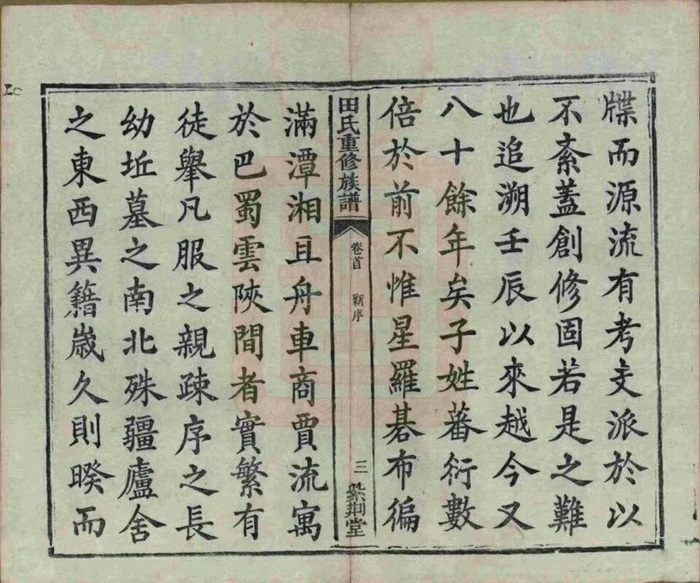 牒而源流有考支派於以
不紊蓋創修固若是之難
也追溯壬辰以來越今又
八十餘年矣子姓蕃衍數
倍於前不惟星羅碁布徧
田氏重修族譜
卷首
新序
三
紫荆堂
滿潭湘且舟車商賈流寓
於巴蜀雲陝間者實繁有
徒舉凡服之親疎序之長
幼坵墓之南北殊疆廬舍
之東西異籍歲久則暌而